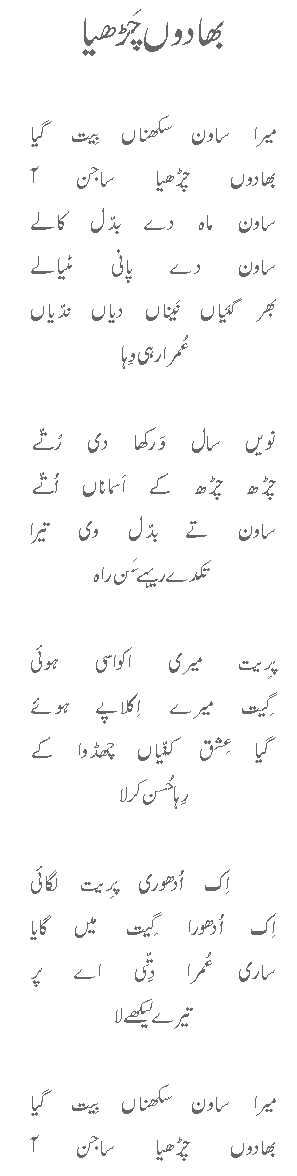 بھادوں چَڑھیا
میرا ساون سکھناں بِیت گیا
بھادوں چڑھیا ساجن آ
ساون ماہ دے بدّل کالے
ساون دے پانی مٹیالے
بھر گئیاں نَیناں دیاں ندّیاں
عُمرا رہی وِہا
نویں سال وَرکھا دی رُتّے
چڑھ چڑھ کے اَسماناں اُتّے
ساون تے بدّل وی تیرا
تکدے رہیے سَن راہ
پِریت میری اکواسی ہوئی
گِیت میرے اِکلاپے ہوئے
گیا عِشق کنّیاں چھڈوا کے
رِہا حُسن کرلا
اِک اُدھوری پِریت لگائی
اِک اُدھورا گِیت میں گایا
ساری عُمرا دِتّی اے پر
تیرے لیکھے لا
میرا ساون سکھناں بِیت گیا
بھادوں چڑھیا ساجن آ